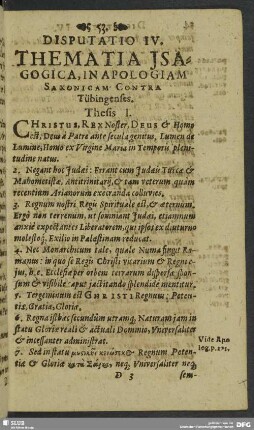 53.
DISPUTATIO IV.
THEMATIA JSA-
GOGICA, IN APOLOGIAM
SAXONICAM CONTRA
Tübingenses.
Thesis I.
CHRISTUS, REX Noster, DEUS & Homo
est, Deus à Patre ante secula genitus, Lumen de
Lumine, Homo ex Virgine Maria in Temporis pleni-
tudine natus.
2. Negant hoc Judæi: Errant cum Judæis Turcæ &
Mahometistæ, Antitrinitarij, & tam veterum quam
recentium Arianorum execranda colluvies.
3. Regnum nostri Regis Spirituale est, & æternum,
Ergò non terrenum, ut somniant Judæi, etiamnum
anxiè expectantes Liberatorem, qui ipsos ex diuturno
molestoq́; Exilio in Palæstinam reducat.
4. Nec Monarchicum tale, quale Numa fingit Ro-
manus: in quo se Regis Christi vicarium & Regnet-
jus, h.e. Ecclesiæ per orbem terrarum dispersæ spon-
sum & visibile caput jactitando splendidè mentitur.
5. Tergeminum est CHRISTI Regnum; Poten-
tiæ, Gratiæ, Gloriæ.
6. Regna ista hæc secundùm utramq; Naturam jam in
statu Gloriæ reali & actuali Dominio, Vniversaliter
& incessanter administrat.
Vide Apo
log. p.
7. Sed in statu & Regnum Poten-
tiæ & Gloriæ neq; Vniversaliter neq;
D 3
sem-